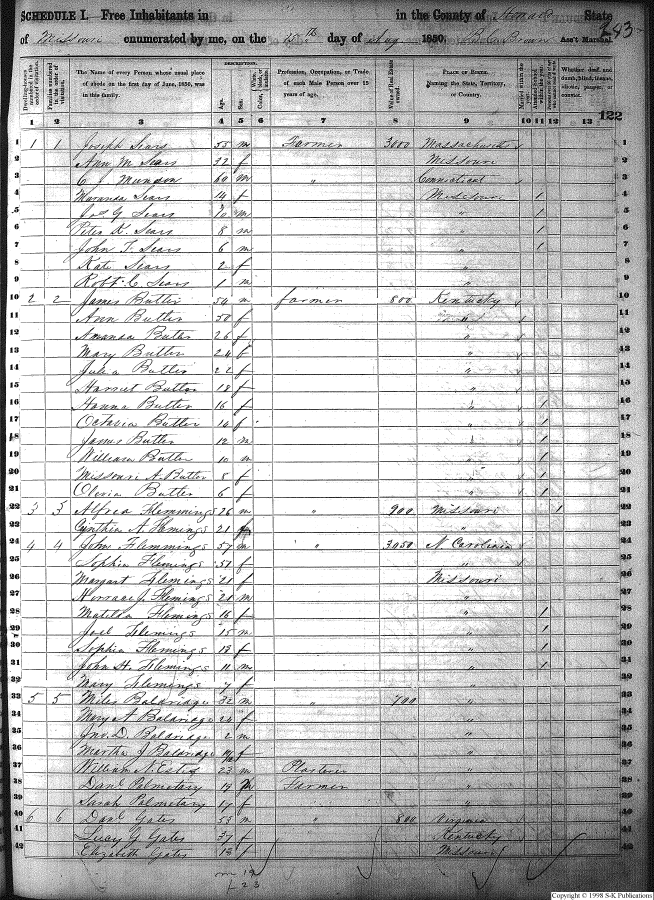 SCHEDULE I. Free Inhabitants in in the County of State
of Missouri enumerated by me, on the day of Aug 1850. Brown Ass't Marshal.
283
DESCRIPTION.
Dwelling-houses numbered in the order of visitation.
Families numbered in the order of visitation.
The Name of every Person whose usual place of abode on the first day of June, 1850, was in this family.
Age.
Sex.
Profession, Occupation, or Trade of each Male Person over 15 years of age.
Value of Real Estate owned.
PLACE OF BIRTH. Naming the State, Territory, or Country.
Married within the year.
Whether deaf and dumb, blind, insane, idiotic, pauper, or convict.
1 2 3 4 5 6 7 8 9 10 11 12 13
122
1 1 1 Joseph Sears 55 m Farmer 3000 Massachusetts 1
2 Ann M Sears 32 f Missouri 2
3 C J Munson 60 m " Connecticut 3
4 Maranda Sears 14 f Missouri 1 4
5 Jos G Sears 10 m " 1 5
6 Peter K. Sears 8 m " 1 6
7 John T. Sears 6 m " 1 7
8 Kate Sears 2 f " 8
9 Robt. C. Sears 1 m " 9
10 2 2 James Butler 54 m Farmer 800 Kentucky 10
11 Ann Butler 50 f " 11
12 Amanda Butler 26 f " 12
13 Mary Butler 24 f " 13
14 Julia Butler 22 f " 14
15 Harriet Butler 18 f " 15
16 Hanna Butler 16 f " 1 16
17 Octavia Butler 14 f " 1 17
18 James Butler 12 m " 1 18
19 William Butler 10 m " 1 19
20 Missouri A. Butler 8 f " 1 20
21 Olivia Butler 6 f " 1 21
22 3 3 Alfred Flemmings 26 m " 900 Missouri 1 22
23 Cynthia A Flemings 21 f " 23
24 4 4 John Flemmings 57 m " 3050 N. Carolina 24
25 Sophia Flemings 51 f " 25
26 Margart Flemings 21 f Missouri 26
27 Horrace J. Flemings 21 m " 27
28 Matilda Flemings 16 f " 1 28
29 Joel Flemings 15 m " 1 29
30 Sophia Flemings 13 f " 1 30
31 John H. Flemings 11 m " 1 31
32 Mary Flemings 7 f " 32
33 5 5 Miles Baldridge 32 m " 700 " 33
34 Mary A Baldridge 24 f " 34
35 Jno. D. Baldridge 2 m " 35
36 Martha J Baldridge f " 36
37 William N. Estes 23 m Plasterer " 37
38 Danl Palmetary 19 m Farmer " 38
39 Sarah Palmetary 17 f " 39
40 6 6 Danl Gates 53 m " 800 Virginia 40
41 Lucy Y Gates 37 f Kentucky 41
42 Elizabeth Gates 13 f Missouri 42
m 19
f 23
Copyright © 1998 S-K Publications